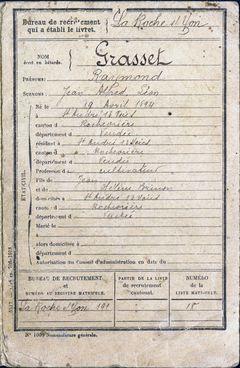 Bureau de recrutement
qui a établi le livret.
La Roche s/ Yon
NOM
écrit en bâtarde.
Grasset
PRÉNOMS:
Raymond
SURNOMS:
Jean Alfred Léon
ÉTAT CIVIL.
Né le 19 Avril 1894
à St André 13 Voies
canton d Rocheservière
département d Vendée
résidant à St André 13 Voies
canton d Rocheservière
département d Vendée
Profession d cultivateur
Fils de Jean
et d
domiciliés à St André 13 Voies
canton d Rocheservière
département d Vendée
Marié le
à
alors domiciliée à
département d
Autorisation du Conseil d'administration en date du
BUREAU DE RECRUTEMENT
et
NUMÉRO AU REGISTRE MATRICULE.
PARTIE DE LA LISTE
de recrutement
cantonal.
NUMÉRO
de la
LISTE MATRICULE.
La Roche s/ Yon 191
15
Nomenclature générale.